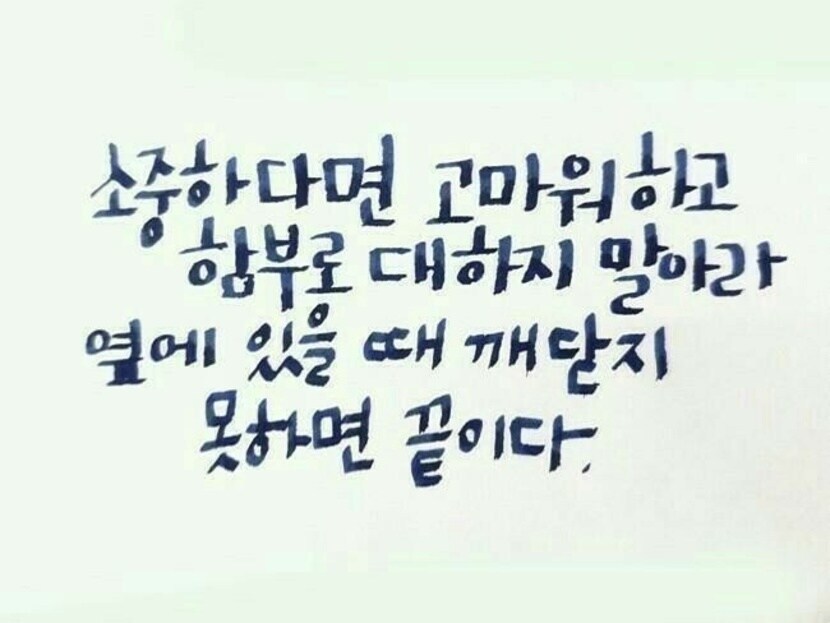 소중하다면 고마워하고
함부로 대하지 말아라
옆에 있을 때 깨닫지
못하면 끝이다.